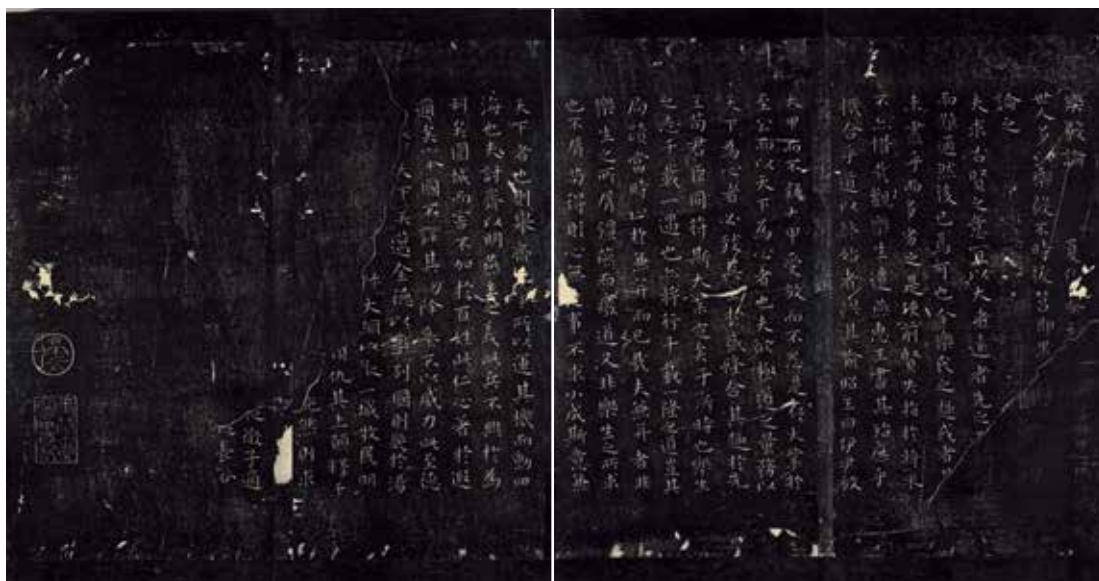 樂毅論 夏侯泰初
世人多以樂毅不時拔莒即墨
論之
夫求古賢之意宜以大者遠者先之
而難通然後已焉可也今樂氏之趣或者其
未盡乎而多劣之是使前賢失指於將來
不亦惜哉觀樂生遺燕惠王書其殆庶乎
機合乎道以終始者與其喻昭王曰伊尹放
大甲而不疑大甲受放而不怨是存大業於
至公而以天下為心者也夫欲極道之量務以
天下為心者必致其主於盛隆合其趣於先
王苟君臣同符斯大業定矣于斯時也樂生
之志千載一遇也亦將行千載一隆之道豈其
局蹟當時止於兼并而已哉夫兼并者非
樂生之所屑彊燕而廢道又非樂生之所求
也不屑苟得則心無近事不求小成斯意兼
天下者也則舉齊之事所以運其機而動四
海也夫討齊以明燕主之義此兵不興於為
利矣圍城而害不加於百姓此仁心著於遐
邇矣舉國不謀其功除暴不以威力此至德
全於天下矣邁全德以率列國則幾於湯
恢大綱以縱二城牧民明
仇其上願釋干
然則求
之徵子適